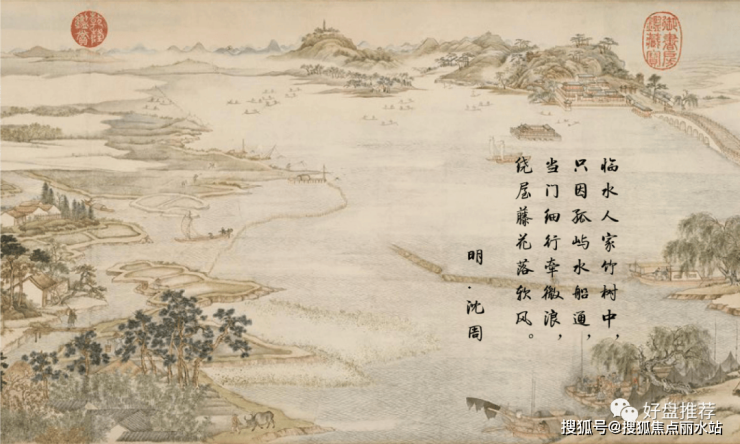 乾隆鑑賞
御書房鑑藏寶
临水人家竹树中，
只因孤屿水船通，
当门细行牵微浪，
绕屋藤花落软风。
明·沈周
好盘推荐
搜狐号@搜狐焦点丽水站